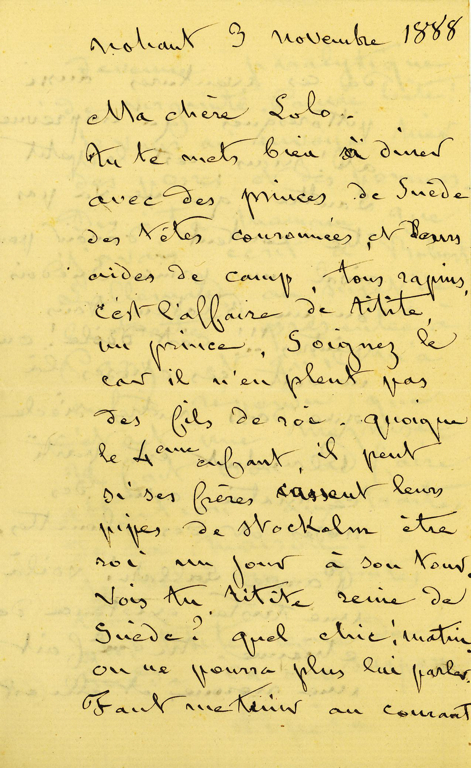 Nohant 3 novembre 1888
Ma chère Lolo.
Tu te mets bien à diner
avec des princes de Suède
des têtes couronnées, et leurs
aides de camp, tous rapins,
c'est l'affaire de Titite,
un prince, Soignez le
car il n'en pleut pas
des fils de roi. quoique
le 4eme enfant, il peut
si ses frères cassent leurs
pipes de Stockolm être
roi un jour à son tour.
Vois tu, Titite reine de
Suède? quel chic! matin,
on ne pourra plus lui parler.
Faut me tenir au courant